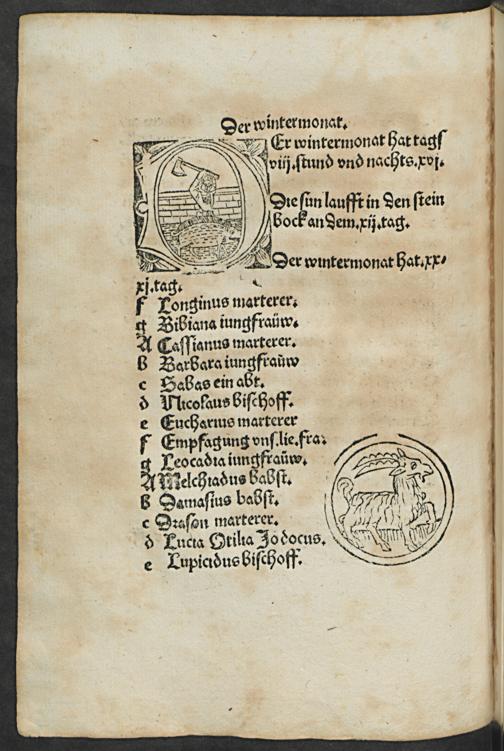 Der wintermonat.
Er wintermonat hat tags
viij.stund vnd nachts.xvj.
Die sun laufft in den stein
bock an dem.xij.tag.
Der wintermonat hat.xx-
xj.tag.
f Longinus marterer.
g Bibiana iungfraüw.
A Cassianus marterer.
b Barbara iungfraüw
c Sabas ein abt.
d Nicolaus bischoff.
e Eucharius marterer
f Empfagung vns.lie.fra.
g Leocadia iungfraüw.
A Melchiadus babst.
b Damasius babst.
c Drason marterer.
d Lucia Otilia Jodocus.
e Lupicidus bischoff.